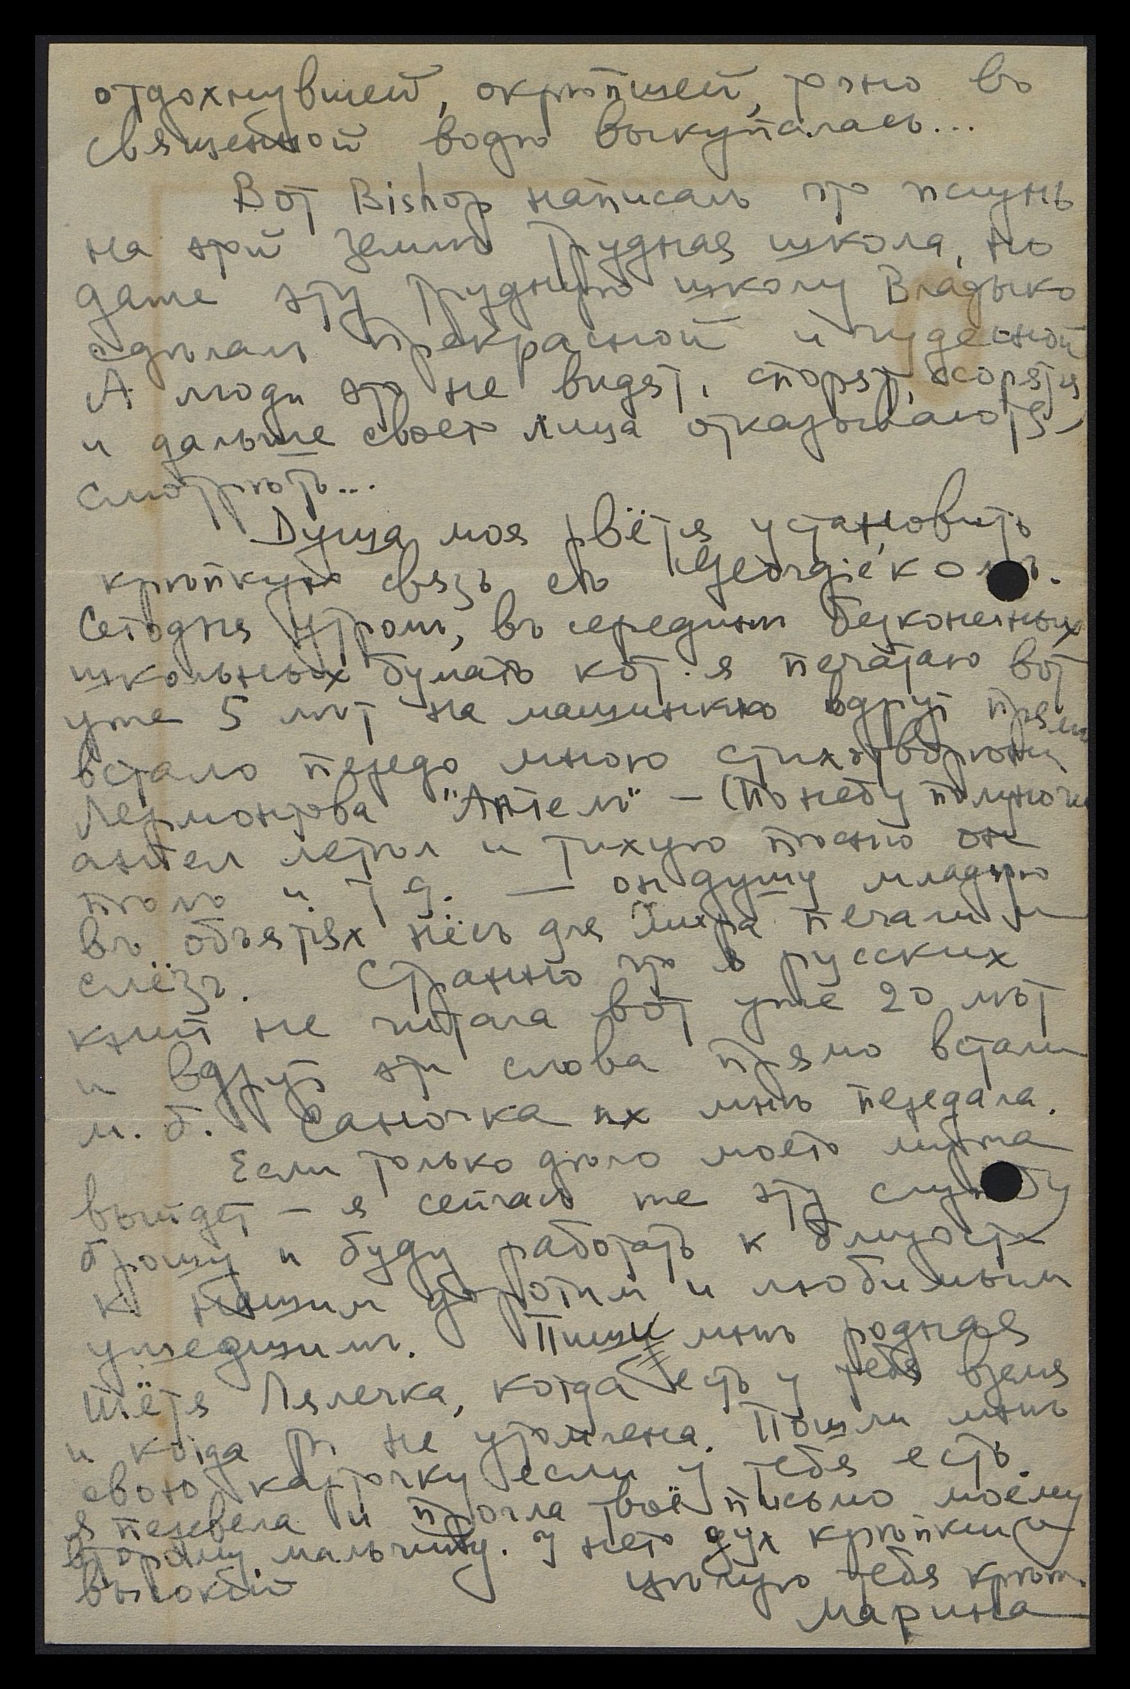 отдохнувшей, окрѣпшей, рано въ
священной водѣ выкупалась...
Вот Bishop написалъ что жизнь
на этой землѣ трудная школа, но
даже эту трудную школу Владыко
сдѣлалъ прекрасной и чудесной
А люди это не видят, спорят, ссорятся
и дальше своего лица отказываются
смотрѣть...
Душа моя рвётся установить
крѣпкую связь съ Georgie'комъ.
Сегодня утромъ, въ серединѣ безконечных
школьных бумагъ кот. я печатаю вот
уже 5 лѣт на машинкѣ вдруг прямо
встало передо мною стихотворѣни
Лермонтова "Ангелъ" – (По небу полуночи
ангел летѣл и тихую пѣсню он
пѣлъ и т д. — он душу младую
въ объятях нёсъ для мира печали и
слёзъ. Странно что я русских
книг не читала вот уже 20 лѣт
и вдруг эти слова прямо встали
м. б. Саночка их мнѣ передала.
Если только дѣло моего мужа
выйдет – я сейчасъ же эту службу
брошу и буду работать к близости
к нашим дорогим и любимым
ушедшимъ. Пиши мнѣ родная
тётя Лялечка, когда есть у тебя время
и когда ты не утомлена. Пошли мнѣ
свою карточку если у тебя есть.
я перевела и прочла твоё письмо моему
второму мальчику. У него дух крѣпкий и
высокій цѣлую тебя крѣпк.
Марина